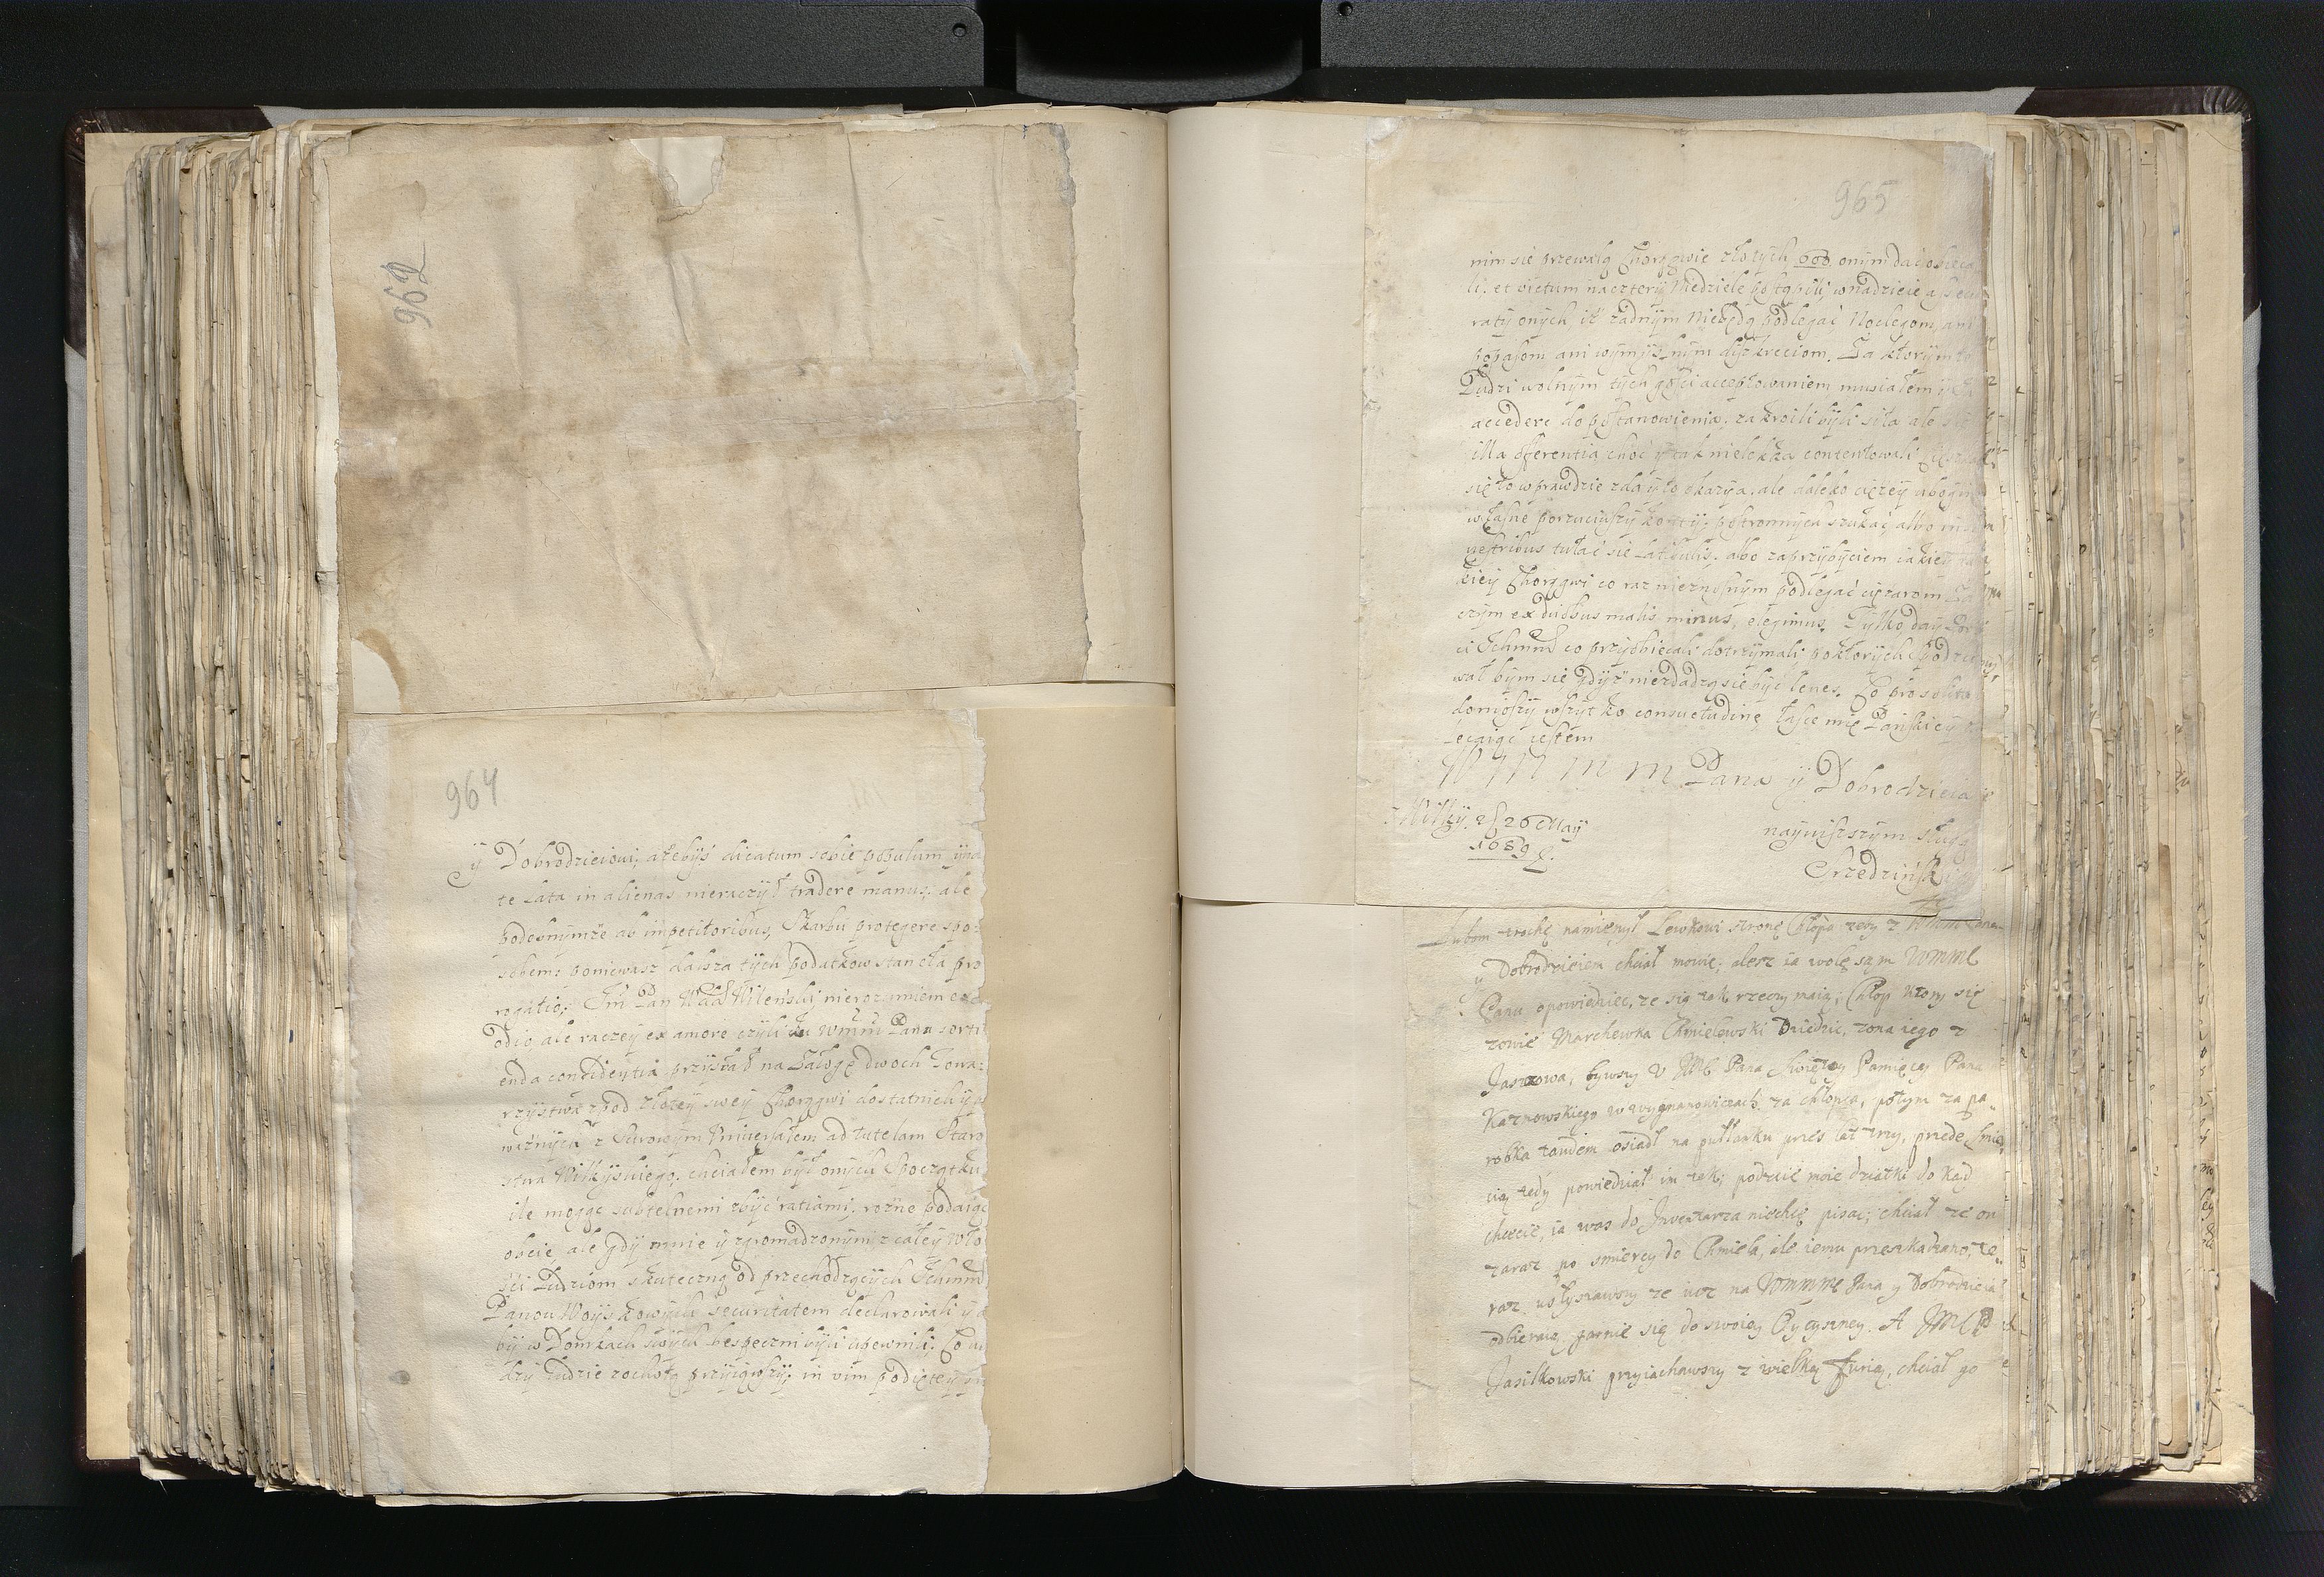 962
964
ÿ Dobrodzieiowi, ażebyś dicatum sobie populum ÿna
te Lata in alienas nieraczÿł tradere manus, ale
podobnÿmże ab impetitoribus, Skarbu protegere spo-
sobem: poniewasz dalsza tÿch podatkow stanęła pro
rogatio. Im Pan Wdа Wilenski nierozumiem ex
odio ale raczeÿ ex amore czÿli w Wmm Pana sorti
enda confidentia przÿsłał na Załogę dwoch Towa-
rzÿstwa zpod złoteÿ sweÿ Chorągwi dostatnich ÿ
ważnÿch z Surowÿm Vniversałem ad tutelam Staro
stwa Wilkÿskiego. chciałem bÿł onÿch Spoczątku
ile mogąc subtelnemi zbÿć ratiami, rożne podaiąc
obcie ale gdÿ mnie ÿ zgromadzonÿm z całeÿ Wło
ści Ludziom skuteczną od przechodzącÿch Ichmm
Panow Woÿskowÿch securitatem declarowali ÿ a
bÿ w Domkach swÿch bespeczni bÿli upewnili; Co u
dzÿ Ludzie zochotą przÿiąwszÿ, in vim podięteÿ
965
nim się przewalą Chorągwie złotÿch 600 onÿm dać obieca
li, et victum na czterÿ Niedziele postąpili, wnadzieię asecu
ratÿ onÿch, iż żadnÿm niebędą podlegać Noclegom, ani
popasom ani wÿmÿslnÿm diskreciom. Za ktorÿmto
Ludzi wolnÿm tÿch gości acceptowaniem, musiałem ÿ
accedere do postanowienia. zakroili bÿli siła ale
illa offerentia choć ÿ tak nielekka contentowali
się to wprawdzie zda ÿ to okazÿa, ale daleko cięzeÿ ubogim
własne porzuciwszÿ kątÿ, postronnÿch szukać, albo
vestribus tułać się Latibulis, albo zaprzÿbÿciem iakieÿ
kieÿ Chorągwi co raz nieznosnÿm podlegać cięzarom
czÿm ex duobus malis minus, elegimus. Tÿlko daÿ Boże
ci Ichmm co przÿobiecali dotrzÿmali, po ktorÿch
wał bÿm się, gdÿż niezdadzą się bÿć lenes. Co pro solita
doniozszÿ wszÿtko, consuetudine łasce mię Panskieÿ
lecaiąc iestem
W M M M Pana ÿ Dobrodzieia
z Wilkÿ 26 Maÿ
1689
naÿniszszÿm sługą
Lubom trochę namienył Lewkowi stronę Chłopa tegy z Wmm Pane
y Dobrodzieiem chciał mowic; alesz ia wolę sąm WMMC
Panu opowiedziec, ze się tak rzeczy maią; Chłop ktory się
zowie Marchewka Chmielewski Dziedzic, zona iego z
Jaszzowa, bywszy v JMC Pana Swiętey Pamięcy Pana
Karnowskiego w wygnanowiczach za chłopca, potym za pa-
robka tandem osiadł na pułłanku przes lat trzy, przede smier
cią tedy powiedział im tak; podzcie moie dziatki do kąd
chcecie, ia was do Inventarza niechcę pisac; chciał ze on
zaraz po smiercy do Chmiela, ale iemu przeszkadzano, te-
raz usłyszawszy ze iuz na WMMMC Pana y Dobrodzieia
odbieraią garnie się do swoiey Oyczyzney. A JMC P
Jasilkowski przyiachawszy z wielką furią, chciał go